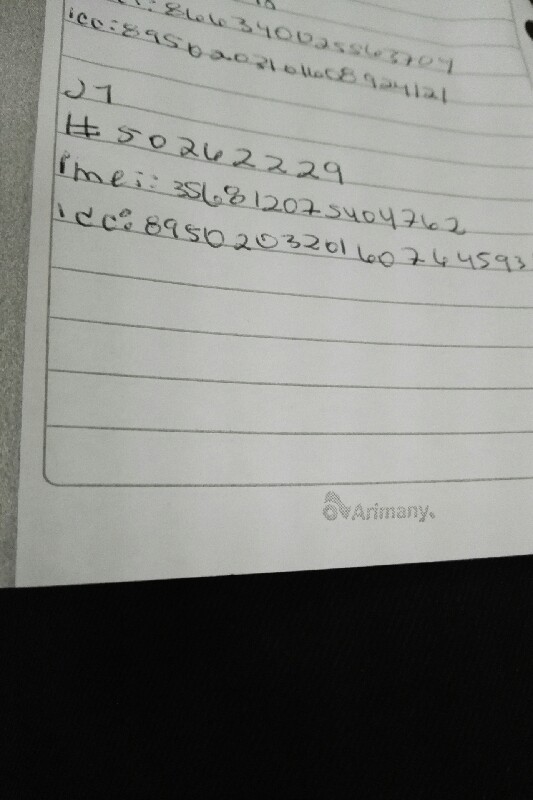 : 866340025563704
icc: 8950203101608924121
J7
# 50262229
imei: 356812075404762
icc: 8950203201660764593
Arimany.